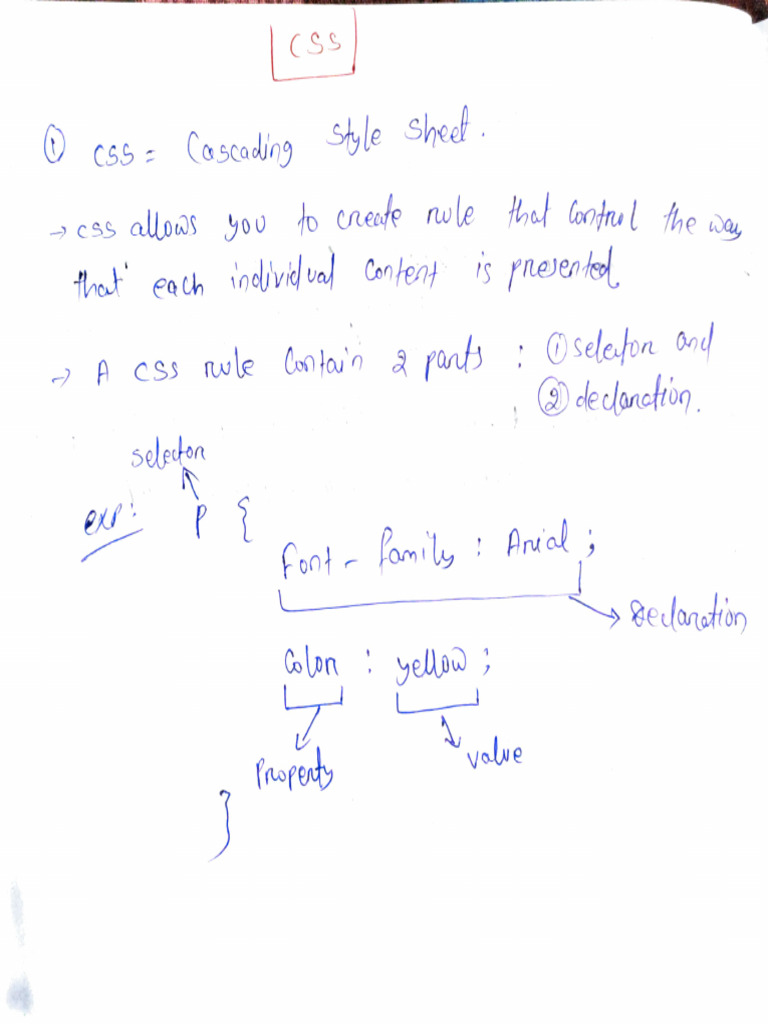 CSS
① CSS = Cascading Style Sheet.
→ CSS allows you to create rule that control the way
that each individual content is presented
→ A CSS rule contain 2 parts : ① selector and
② declaration.
selector
exp: P {
Font-family : Arial ;
Declaration
Color : yellow ;
Property value
}